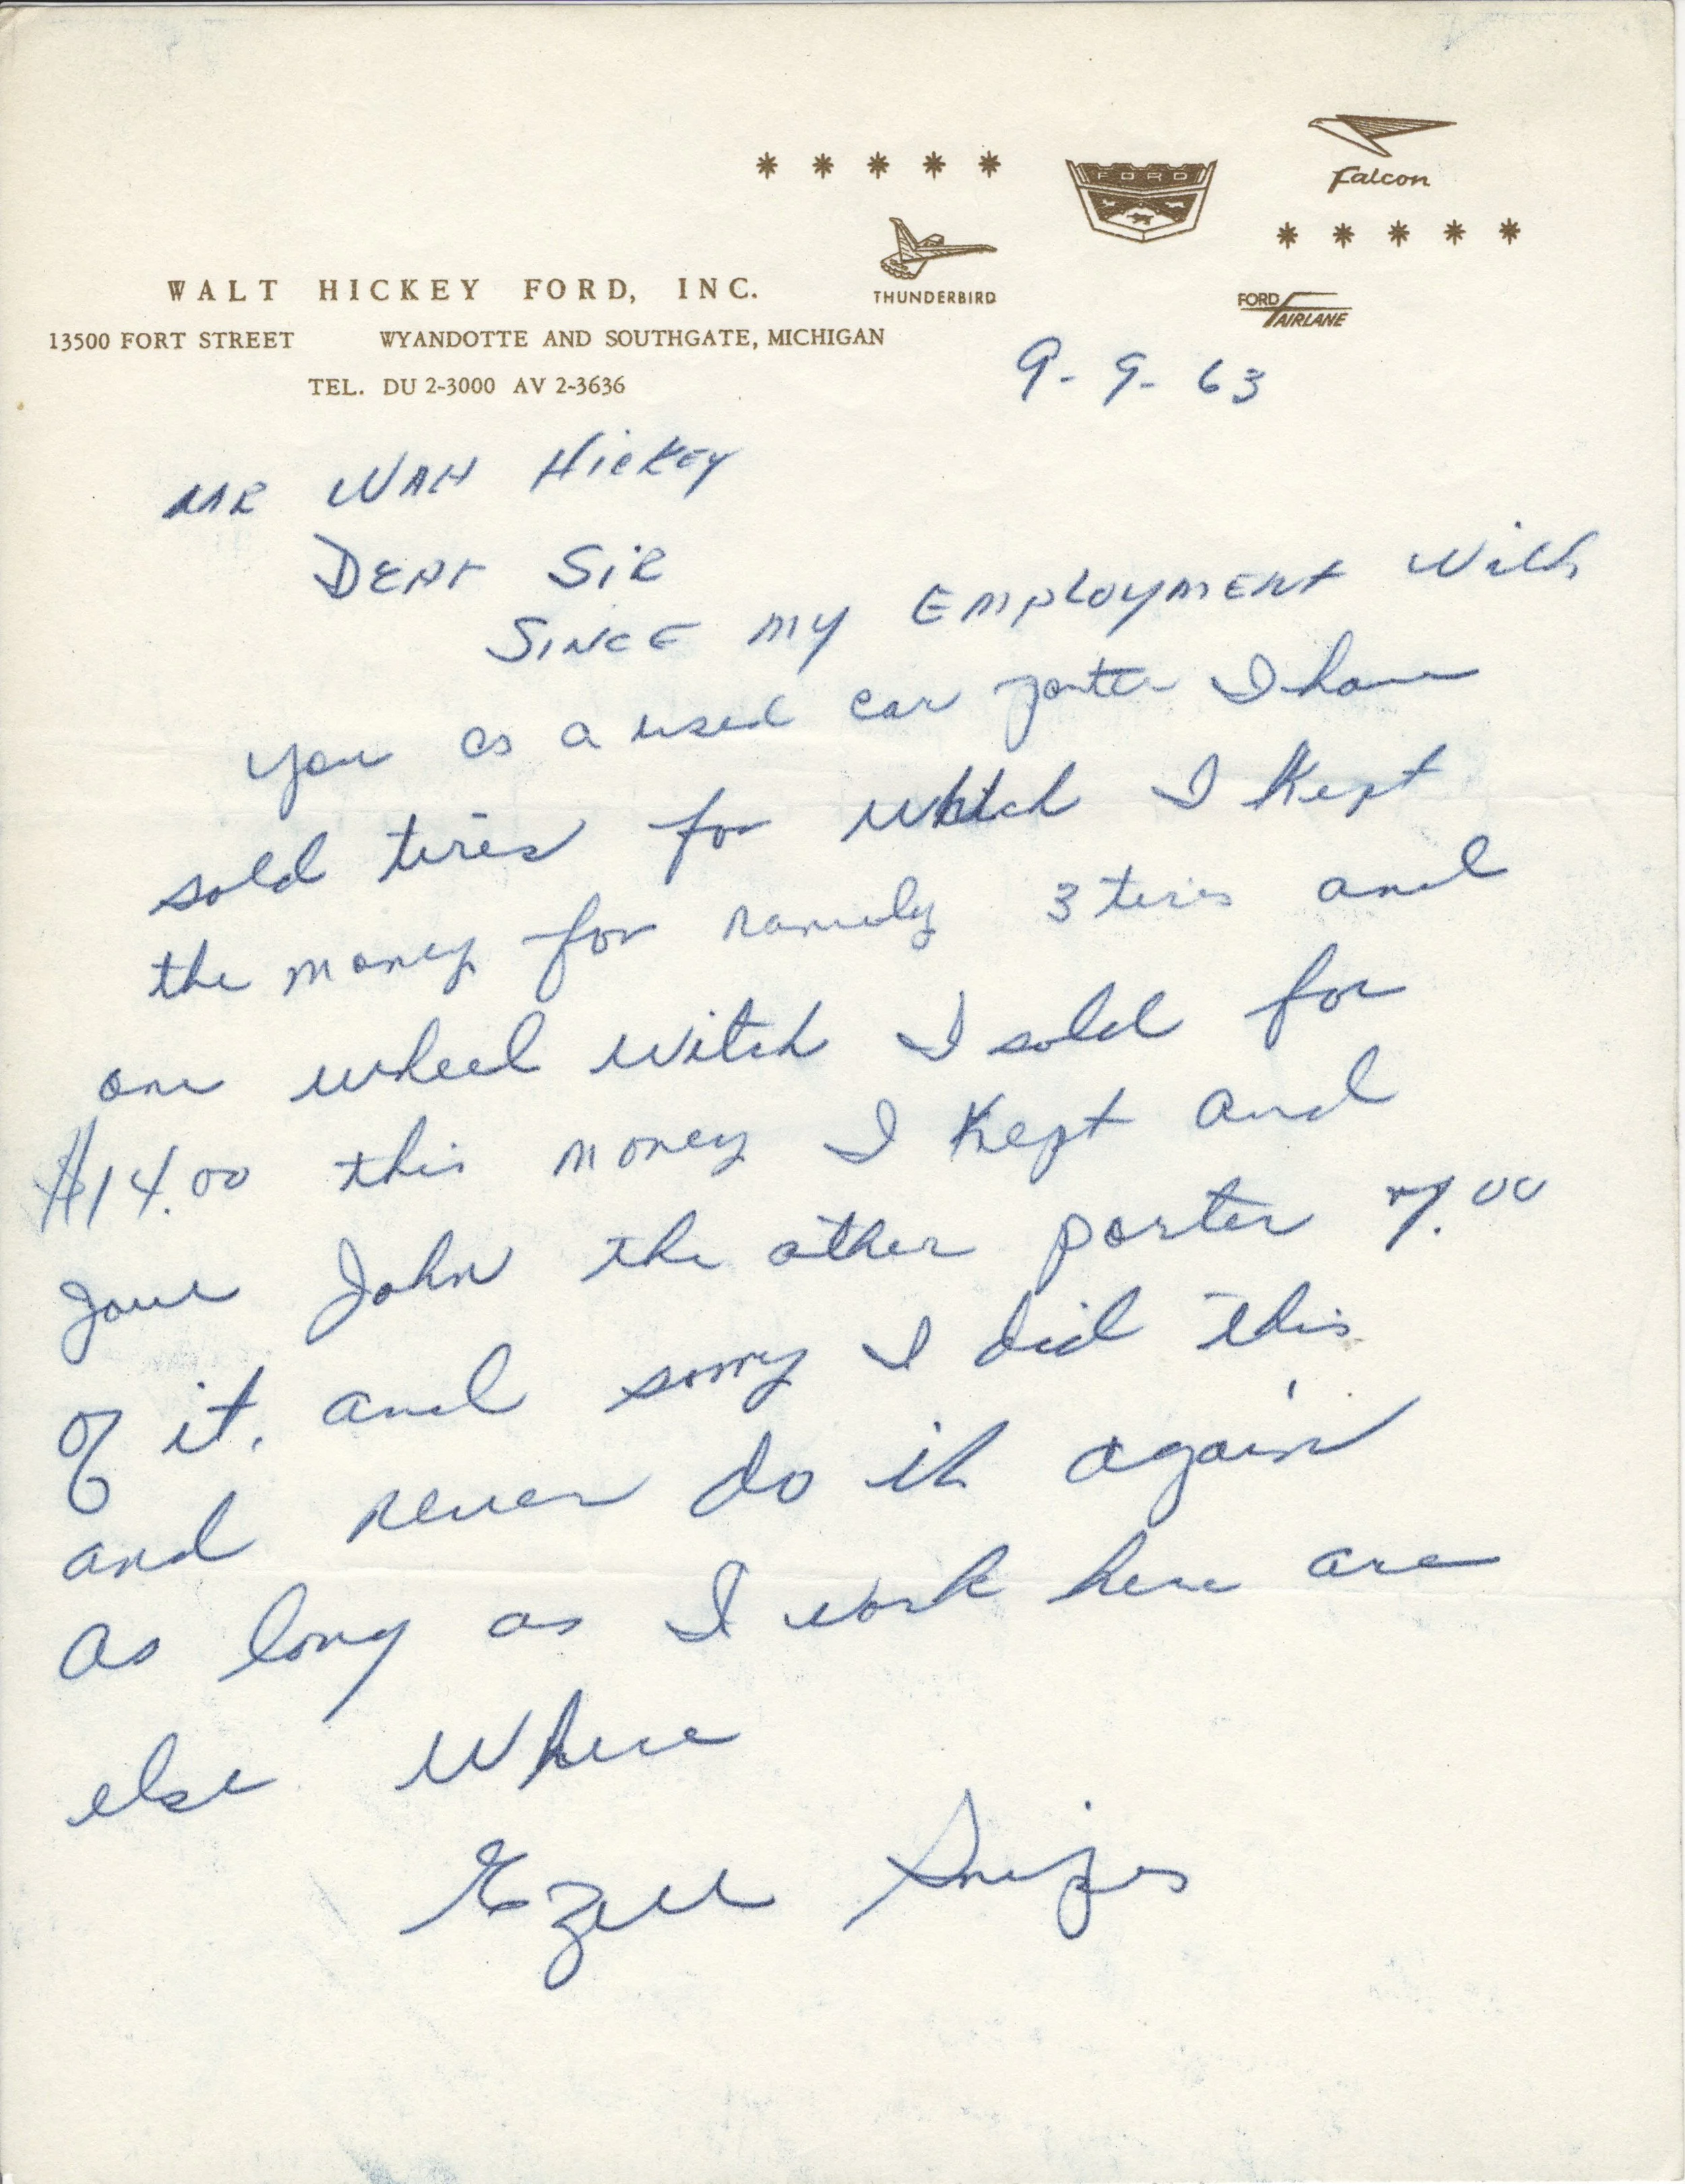 * * * * *
FORD
Falcon
* * * * *
THUNDERBIRD
FORD FAIRLANE
WALT HICKEY FORD, INC.
13500 FORT STREET WYANDOTTE AND SOUTHGATE, MICHIGAN
TEL. DU 2-3000 AV 2-3636
9-9-63
MR Walt Hickey
Dear Sir
Since my Employment With
you as a used car porter I have
sold tires for which I kept
the money for namely 3 tires and
one wheel witch I sold for
$14.00 this money I kept and
gave John the other porter 7.00
of it. and sorry I did this
and never do it again
as long as I work here are
else where
Ezell Snipes